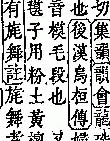 切集韻韻會
也後漢烏桓傳
音模毛段也
子用粉土黃
有旄舞註旄舞者